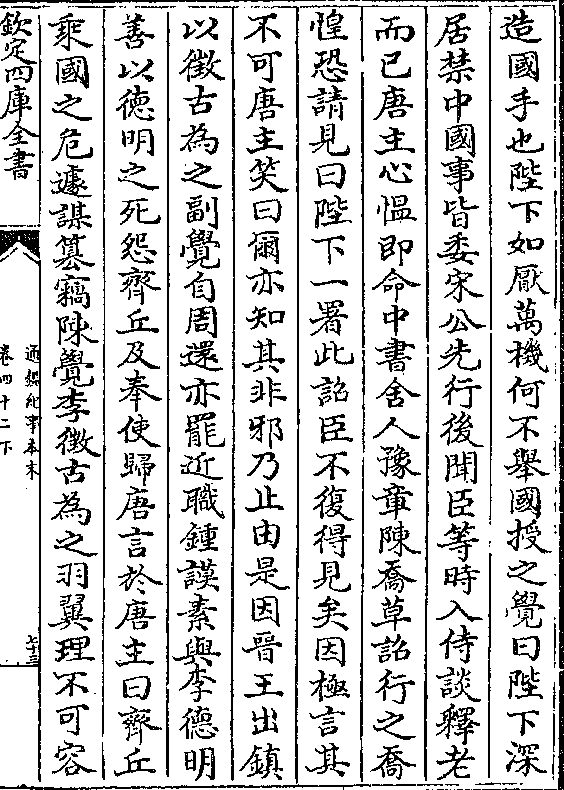 造國手也陛下如厭萬機何不舉國授之覺曰陛下深
居禁中國事皆委宋公先行後聞臣等時入侍談釋老
而已唐主心慍即命中書舍人豫章陳喬草詔行之喬
惶恐請見曰陛下一署此詔臣不復得見矣因極言其
不可唐主笑曰爾亦知其非邪乃止由是因晉王出鎮
以徵古為之副覺自周還亦罷近職鍾謨素與李德明
善以德明之死怨齊丘及奉使歸唐言於唐主曰齊丘
乘國之危遽謀篡竊陳覺李徵古為之羽翼理不可容
欽定四庫全書
通鑑紀事本末
卷四十二下
七十三